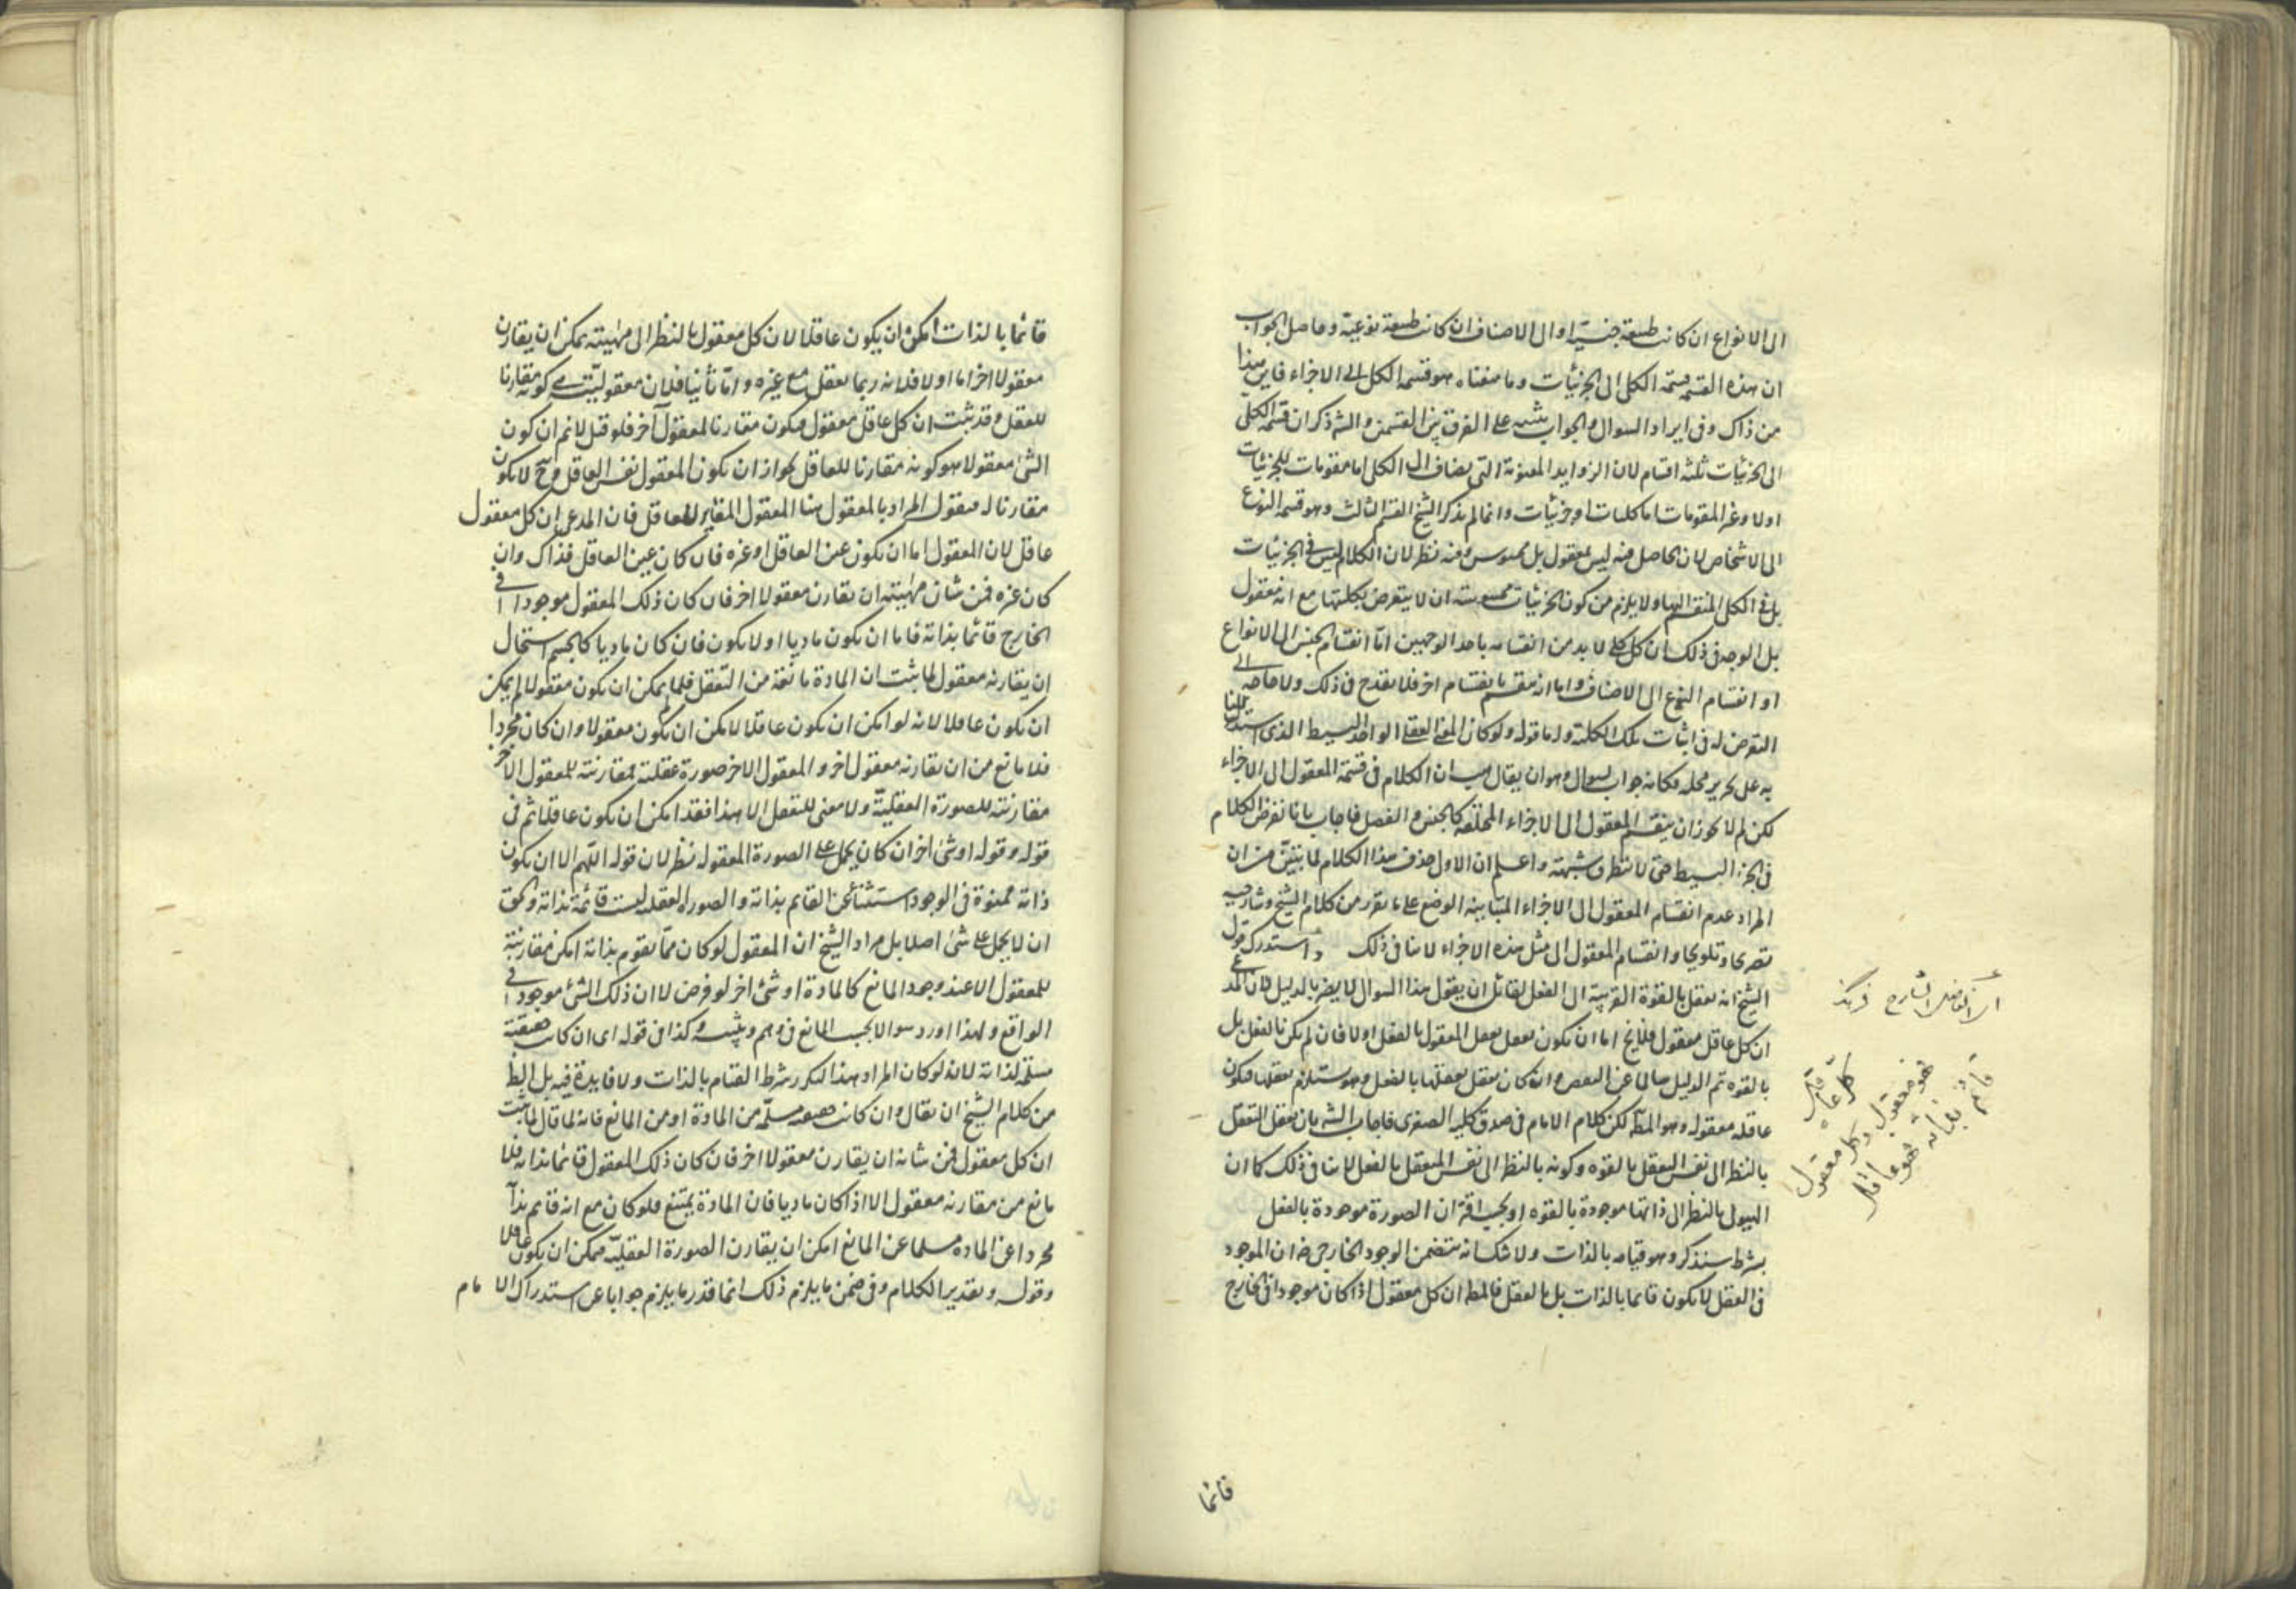 الى الانواع ان كانت طبيعة جنسية او الى الاصناف ان كانت طبيعة نوعية وحاصل الجواب
ان هذه القسمة قسمة الكلى الى الجزئيات وما منعناه هو قسمة الكل الى الاجزاء فاين هذا
من ذاك وفى ايراد السوال والجواب تنبيه على الفرق بين القسمين والشه ذكر ان قسمة الكلى
الى الجزئيات ثلثه اقسام لان الزوايد المعنوية التى يضاف الى الكلى اما مقومات للجزئيات
اولا وغير المقومات اما كليات او جزئيات وانما لم يذكر الشيخ القسم الثالث وهو قسمه النوع
الى الاشخاص لان الحاصل منه ليس بمعقول بل محسوس وفيه نظر لان الكلام ليس فى الجزئيات
بل فى الكلى المنقسم اليها ولا يلزم من كون الجزئيات محسوسة ان لا يتعرض لكليتها مع انه معقول
بل الوجه فى ذلك ان كل كلى لا بد من انقسامه باحد الوجهين اما انقسام الجنس الى الانواع
او انقسام النوع الى الاصناف واما انه منقسم بانقسام اخر فلا يقدح فى ذلك ولا حاجه الى
التعرض له فى اثبات تلك الكلية واما قوله ولو كان المعنى العقلى الواحد البسيط الذى استدللنا
به على تحرير محله فكانه جواب لسوال وهو ان يقال هب ان الكلام فى قسمة المعقول الى الاجزاء
لكن لم لا يجوز ان ينقسم المعقول الى الاجزاء المختلفه كالجنس والفصل فاجاب بانا نفرض الكلام
فى الجزء البسيط حتى لا تتطرق شبهة واعلم ان الاول حذف هذا الكلام لما تبين من ان
المراد عدم انقسام المعقول الى الاجزاء المتباينه الوضع على ما تقرر من كلام الشيخ وشارحيه
تصريحا وتلويحا وانقسام المعقول الى مثل هذه الاجزاء لا ينافى ذلك واستدرك قول
الشيخ انه يعقل بالقوة القريبة الى الفعل لقائل ان يقول هذا السوال لا يضر بالدليل لان المدعى
ان كل عاقل معقول فلا يخ اما ان يكون يعقل المعقول بالفعل اولا فان لم يكن بالفعل بل
بالقوه تم الدليل سالما عن النقص وان كان يعقل بعقلها بالفعل وهو يستلزم تعقلها فيكون
عاقله معقوله وهو المط لكن كلام الامام فى صدق كليه الصغرى فاجاب الشه بان تعقل التعقل
بالنظر الى نفس التعقل بالقوه وكونه بالنظر الى نفس المتعقل بالفعل لا ينافى ذلك كما ان
الهيولى بالنظر الى ذاتها موجودة بالقوه وبحسب اقتران الصورة موجودة بالفعل
بشرط سنذكره وهو قيامه بالذات ولا شك انه يتضمن الوجود الخارجى ضه ان الموجود
فى العقل لا يكون قائما بالذات بل بالعقل فالمط ان كل معقول اذا كان موجودا فى الخارج
كل عاقل
فهو معقول وكل معقول
قائم بذاته فهو عاقل
قائما
قائما بالذات امكن ان يكون عاقلا لان كل معقول بالنظر الى مهيته يمكن ان يقارن
معقولا اخر اما اولا فلانه ربما يعقل مع غيره واما ثانيا فلان معقوليته هى كونه مقارنا
للعقل وقد ثبت ان كل عاقل معقول فيكون مقارنا لمعقول آخر فلو قيل لا نم ان كون
الشئ معقولا هو كونه مقارنا للعاقل لجواز ان يكون المعقول نفس العاقل وح لا يكون
مقارنا له فنقول المراد بالمعقول هنا المعقول المغاير للعاقل فان المدعى ان كل معقول
عاقل لان المعقول اما ان يكون عين العاقل او غيره فان كان عين العاقل فذاك وان
كان غيره فمن شان مهيته ان يقارن معقولا اخر فان كان ذلك المعقول موجودا فى
الخارج قائما بذاته فاما ان يكون ماديا او لا يكون فان كان ماديا كالجسم استحال
ان يقارنه معقول لما ثبت ان المادة مانعة من التعقل فلما يمكن ان يكون معقولا لم يمكن
ان يكون عاقلا لانه لو امكن ان يكون عاقلا لامكن ان يكون معقولا وان كان مجردا
فلا مانع من ان يقارنه معقول اخر والمعقول الاخر صورة عقلية فمقارنته للمعقول الاخر
مقارنته للصورة العقلية ولا معنى للتعقل الا هذا فقد امكن ان يكون عاقلا ثم فى
قوله وقوله او شئ اخر ان كان يحمل على الصورة المعقوله نظر لان قوله اللهم الا ان يكون
ذاته ممنوة فى الوجود استثناء عن القايم بذاته والصورة العقلية ليست قائمة بذاته والحق
ان لا يحمل على شئ اصلا بل مراد الشيخ ان المعقول لو كان مما يقوم بذاته امكن مقارنته
للمعقول الا عند وجود المانع كالمادة او شئ اخر لو فرض لا ان ذلك الشئ موجود فى
الواقع ولهذا اورد سوالا بحسب المانع وكذا فى قوله اى ان كانت حقيقة
مسلمة لذاته لانه لو كان المراد هذا لتكرر شرط القيام بالذات ولا فايدة فيه بل الظ
من كلام الشيخ ان يقال وان كانت حقيقه مسلمة من المادة او من المانع فانه لما قال لما ثبت
ان كل معقول فمن شانه ان يقارن معقولا اخر فان كان ذلك المعقول قائما بذاته فلا
مانع من مقارنه معقول الا اذا كان ماديا فان المادة يمتنع فلو كان مع انه قايم بذاته
مجردا عن الماده مسلما عن المانع امكن ان يقارن الصورة العقلية فيمكن ان يكون عاقلا
وقوله وتقدير الكلام وفى ضمن ما يلزم ذلك انما قدر ما يلزم جوابا عن استدراك الامام